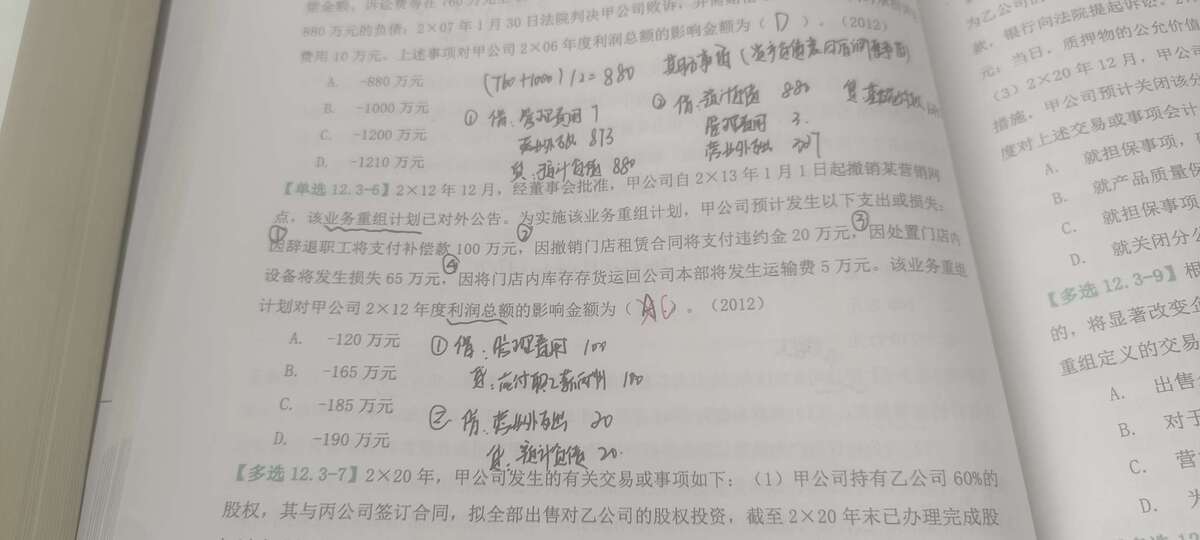 880 万元的负债；2×07 年 1 月 30 日法院判决甲公司败诉，并需赔偿
费用 10 万元。上述事项对甲公司 2×06 年度利润总额的影响金额为（ D ）。（2012）
A. -880 万元
(760+1000)/2=880
B. -1000 万元
① 借：管理费用 7
② 借：预计负债 880
C. -1200 万元
营业外支出 873
管理费用 3
D. -1210 万元
贷：预计负债 880
营业外支出
【单选 12.3-6】2×12 年 12 月，经董事会批准，甲公司自 2×13 年 1 月 1 日起撤销某营销网
点，该业务重组计划已对外公告。为实施该业务重组计划，甲公司预计发生以下支出或损失：
① ② ③
因辞退职工将支付补偿款 100 万元，因撤销门店租赁合同将支付违约金 20 万元，因处置门店内
④
设备将发生损失 65 万元，因将门店内库存存货运回公司本部将发生运输费 5 万元。该业务重组
计划对甲公司 2×12 年度利润总额的影响金额为（ A C ）。（2012）
A. -120 万元
① 借：管理费用 100
B. -165 万元
贷：应付职工薪酬 100
C. -185 万元
② 借：营业外支出 20
D. -190 万元
贷：预计负债 20
【多选 12.3-7】2×20 年，甲公司发生的有关交易或事项如下：（1）甲公司持有乙公司 60%的
股权，其与丙公司签订合同，拟全部出售对乙公司的股权投资，截至 2×20 年末已办理完成股
为乙公司的
款，银行向法院提起诉讼，
元；当日，质押物的公允价值
（3）2×20 年 12 月，甲公司
措施，甲公司预计关闭该分
度对上述交易或事项会计
A. 就担保事项，
B. 就产品质量保
C. 就担保事项
D. 就关闭分公
【多选 12.3-9】根
的，将显著改变企
重组定义的交易
A. 出售
B. 对于
C. 营
D. 为